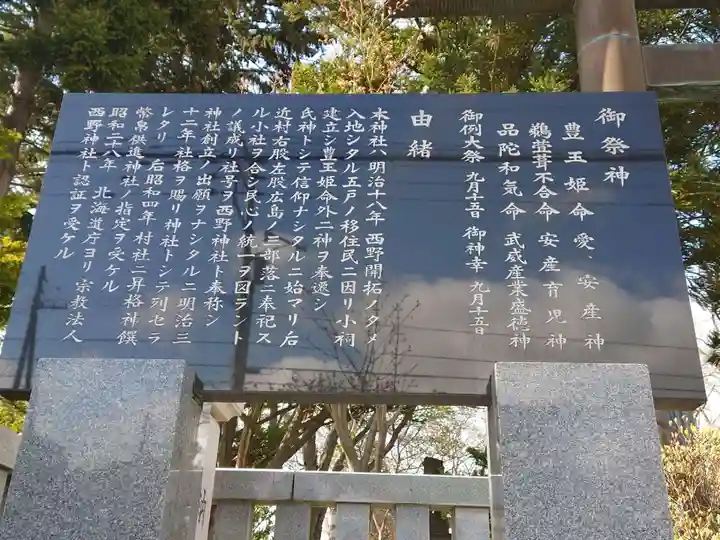 御祭神
豊玉姫命 愛、安産神
鵜葺葺不合命 安産育児神
品陀和気命 武威産業盛徳神
御例大祭 九月十五日 御神幸 九月十五日
由緒
本神社ハ明治十八年 西野開拓ノタメ
入地シタル五戸ノ移住民ニ因リ小祠
建立シ豊玉姫命外二神ヲ奉遷シ
氏神トシテ信仰ナシタルニ始マリ后
近村右股左股広島ノ三部落ニ奉祀ス
ル小社ヲ合シ民心ノ統一ヲ図ラント
ノ議成リ社号ヲ西野神社ト奉称シ
神社創立ノ出願ヲナシタルニ明治三
十二年社格ヲ賜リ神社トシテ列セラ
レタリ 后昭和四年 村社ニ昇格神饌
幣帛供進神社ノ指定ヲ受ケル
昭和二十八年 北海道庁ヨリ宗教法人
西野神社ト認証ヲ受ケル